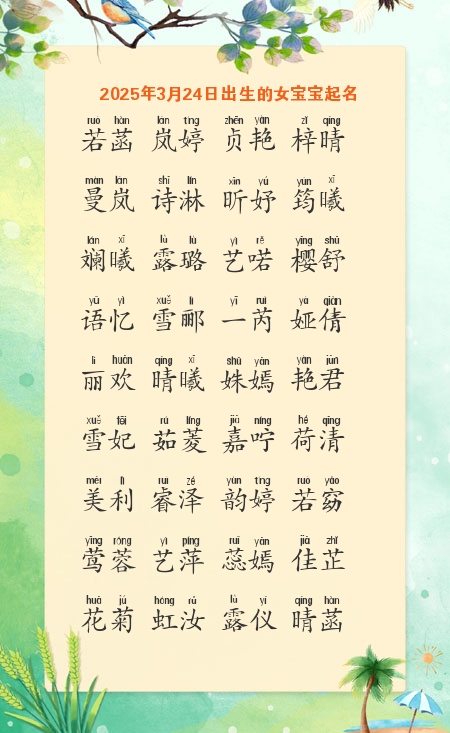 2025年3月24日出生的女宝宝起名
ruò hàn lán tíng zhēn yàn zǐ qíng
若菡 岚婷 贞艳 梓晴
màn lán shī lín xīn yú yún xī
曼岚 诗淋 昕妤 筠曦
lán xī lù lù yì rě yīng shū
斓曦 露璐 艺喏 樱舒
yǔ yì xuě lì yī ruì yà qiàn
语忆 雪郦 一芮 娅倩
lì huān qíng xī shū yān yàn jūn
丽欢 晴曦 姝嫣 艳君
xuě fēi rú líng jiā níng hé qīng
雪妃 茹菱 嘉咛 荷清
měi lì ruì zé yùn tíng ruò yǎo
美利 睿泽 韵婷 若窈
yīng róng yì píng ruǐ yān jiā zhǐ
莺蓉 艺萍 蕊嫣 佳芷
huā jú hóng rǔ lù yí qíng hàn
花菊 虹汝 露仪 晴菡